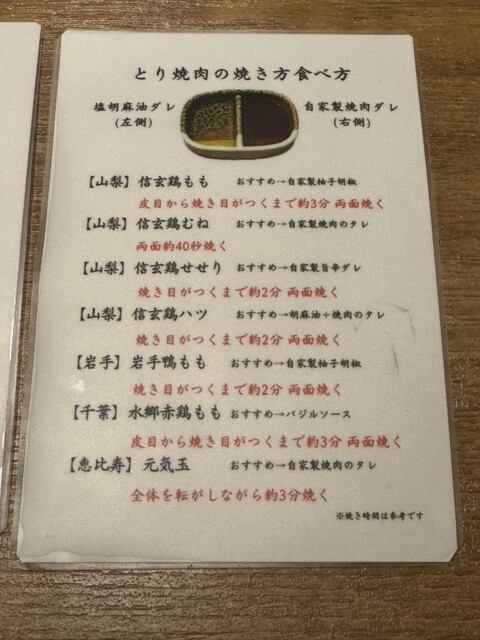 とり焼肉の焼き方食べ方
塩胡麻油ダレ
(左側)
自家製焼肉ダレ
(右側)
【山梨】信玄鶏もも おすすめ→自家製柚子胡椒
皮目から焼き目がつくまで約3分 両面焼く
【山梨】信玄鶏むね おすすめ→自家製焼肉のタレ
両面約40秒焼く
【山梨】信玄鶏せせり おすすめ→自家製旨辛ダレ
焼き目がつくまで約2分 両面焼く
【山梨】信玄鶏ハツ おすすめ→胡麻油+焼肉のタレ
焼き目がつくまで約2分 両面焼く
【岩手】岩手鴨もも おすすめ→自家製柚子胡椒
焼き目がつくまで約2分 両面焼く
【千葉】水郷赤鶏もも おすすめ→バジルソース
皮目から焼き目がつくまで約3分 両面焼く
【恵比寿】元気玉 おすすめ→自家製焼肉のタレ
全体を転がしながら約3分焼く
※焼き時間は参考です